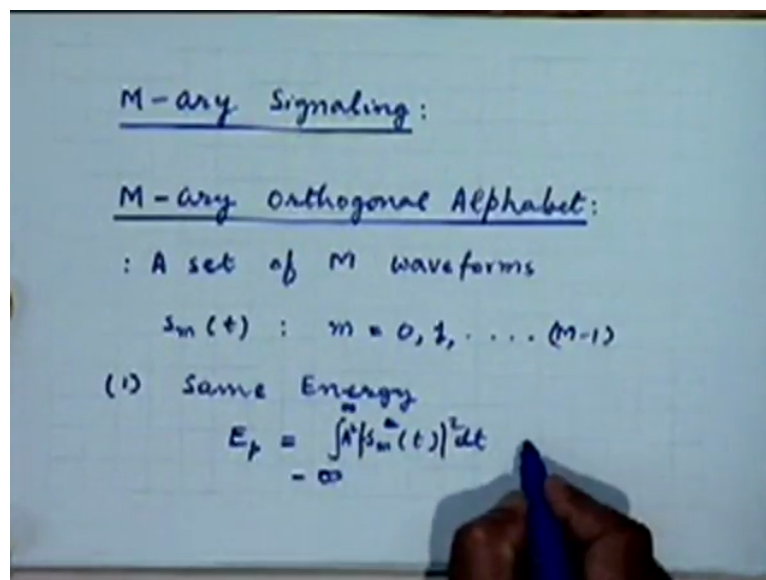 M-ary Signaling:
M-ary Orthogonal Alphabet:
: A set of M waveforms
sₘ(t) : m = 0, 1, . . . . (M-1)
(1) Same Energy
Eₚ = ∫_{-∞}^{∞} A²|sₘ(t)|² dt